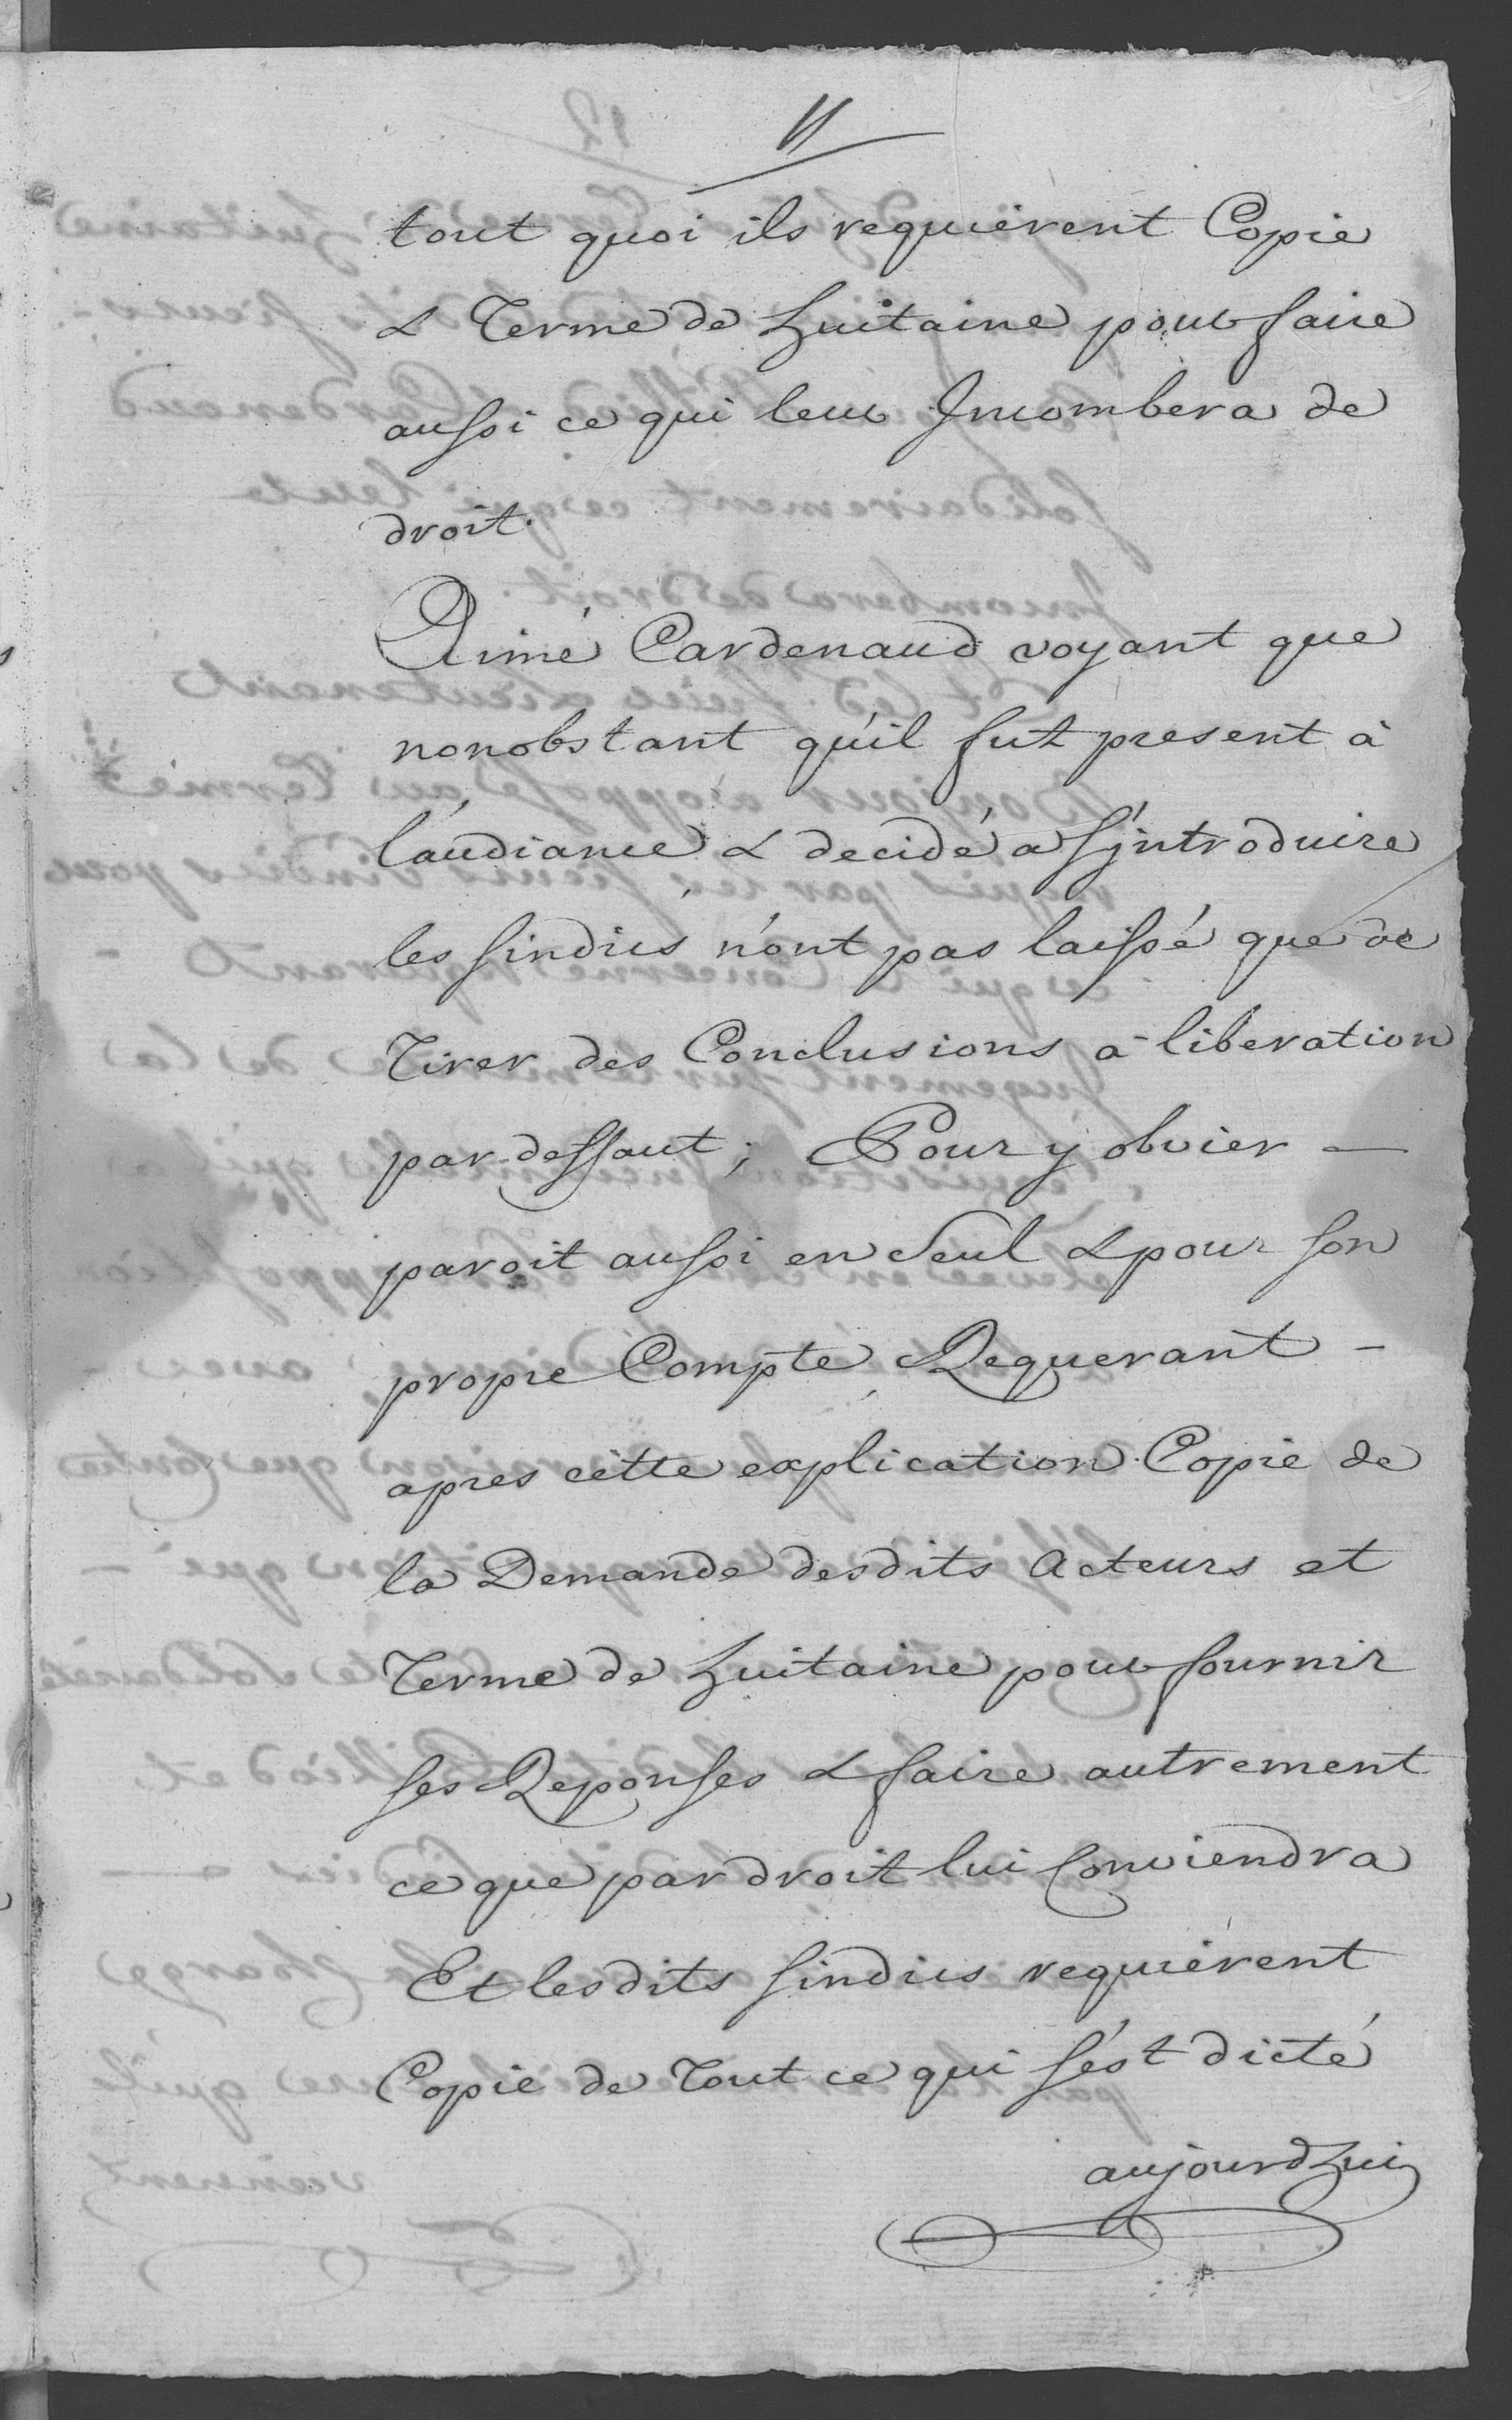 11
tout quoi ils requiérent Copie
& Terme de huitaine pour faire
aussi ce qui leur Jncombera de
droit.
Aimé Cardenaud voyant que
nonobstant qu'il fut present à
l'audiance & decidé a s'jntroduire
les sindics n'ont pas laissé que de
Tirer des Conclusions a liberation
par deffaut ; Pour y obvier —
paroit aussi en Seul & pour son
propre Compte, Requerant -
apres cette explication Copie de
la Demande desdits Acteurs et
Terme de huitaine pour fournir
ses Reponses & faire autrement
ce que par droit lui Conviendra
Et lesdits sindics requiérent
Copie de Tout ce qui s'est dicté
aujourdhui